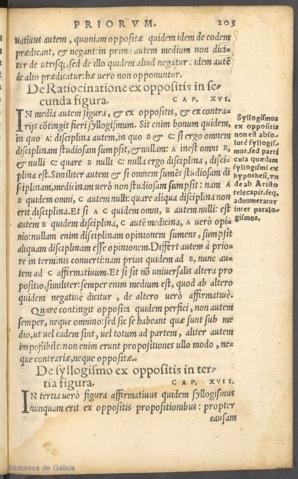 PRIORVM. 203
uatiuus autem, quoniam oppositæ quidem idem de eodem
prædicant, & negant: in prima autem medium non dici-
tur de utrisq;, sed de illo quidem aliud negatur: idem autē
de alio prædicatur: hæ uero non opponuntur.
De Ratiocinatione ex oppositis in se-
cunda figura. CAP. XVI.
IN media autem figura, & ex oppositis, & ex contra-
rijs cōtingit fieri syllogismum. Sit enim bonum quidem,
in quo A: disciplina autem, in quo B & C: si ergo omnem
disciplinam studiosam sumpsit, & nullam: A inest omni B,
& nulli C: quare B nulli C: nulla ergo disciplina, disci-
plina est. Similiter autem & si omnem sumēs studiosam di
sciplinam, medicinam uerò non studiosam sumpsit: nam A
B quidem omni, C autem nulli: quare aliqua disciplina non
erit disciplina. Et si A C quidem omni, B autem nulli: est
autem B quidem disciplina, C autē medicina, A uerò opi-
nio: nullam enim disciplinam opinionem sumens, sumpsit
aliquam disciplinam esse opinionem. Differt autem à prio-
re in terminis conuerti: nam prius quidem ad B, nunc au-
tem ad C affirmatiuum. Et si sit nō uniuersalis altera pro
positio, similiter: semper enim medium est, quod ab altero
quidem negatiuè dicitur, de altero uerò affirmatiuè.
Quare contingit opposita quidem perfici, non autem
semper, neque omnino: sed sic se habeant quæ sunt sub me
dio, ut uel eadem sint, uel totum ad partem, aliter autem
impoßibile: non enim erunt propositiones ullo modo, ne-
que contrariæ, neque oppositæ.
De syllogismo ex oppositis in ter-
tia figura. CAP. XVII.
IN tertia uerò figura affirmatiuus quidem syllogismus
nunquam erit ex oppositis propositionibus: propter
causam
Syllogismus
ex oppositis
non est abso-
lutè syllogis-
mus, sed parti
cula quædam
syllogismi ex
hypothesi, vn
de ab Aristo
tele capit. seq.
adnumeratur
inter paralo-
gismos.
Biblioteca de Galicia